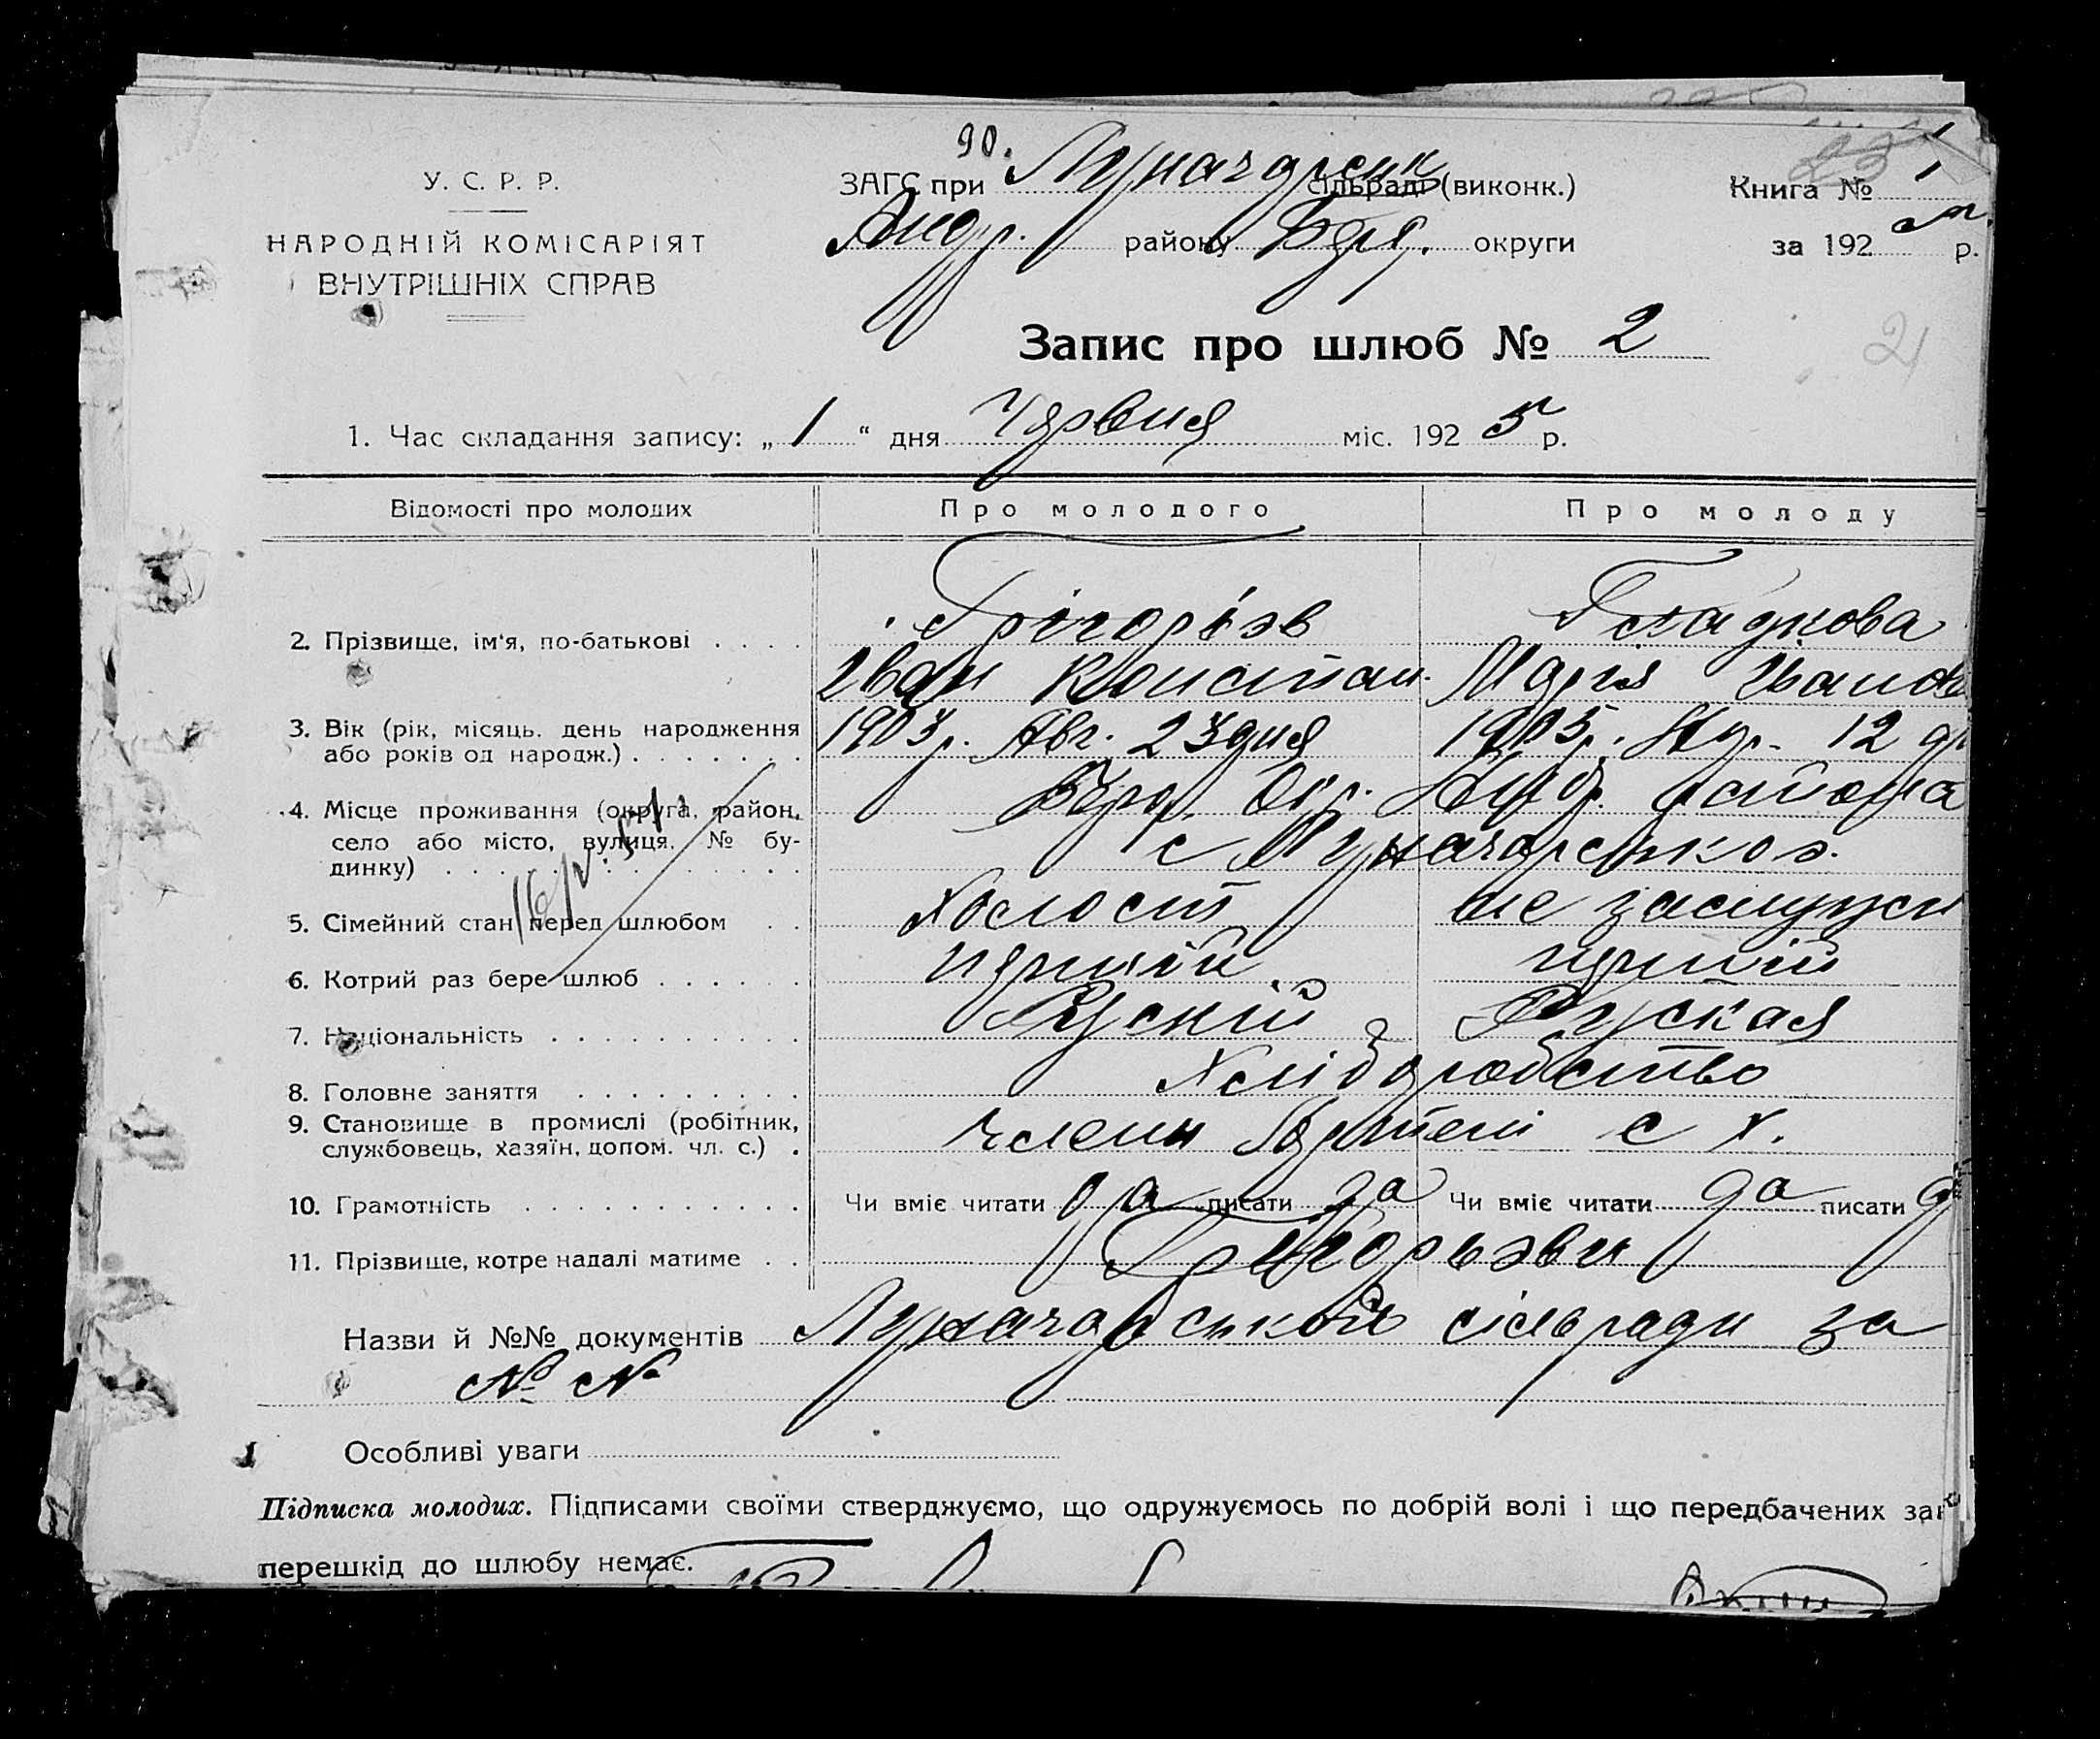 90.
У. С. Р. Р.
НАРОДНІЙ КОМІСАРІЯТ
ВНУТРІШНІХ СПРАВ
ЗАГС при Луначарськ сільраді (виконк.)
Андр. району БЕрд. округи
Книга № 1
за 192 5 р.
Запис про шлюб № 2
21
1. Час складання запису: „ 1 “ дня Чэрвня міс. 192 5 р.
Відомості про молодих Про молодого Про молоду
2. Прізвище, ім'я, по-батькові . . . . Грігорьэв Гладкова
Іван Констан. Марія Іванов
3. Вік (рік, місяць. день народження 1903 р. Авг. 23 дня 1905 р. 12
або років од народж.) . . . . . . .
4. Місце проживання (округа, район, Бэрд. Окр. Андр. району
село або місто, вулиця, № бу- с Луначарськоэ.
динку) . . . . . . . . . . . . . .
5. Сімейний стан перед шлюбом . . Холост не замужн
6. Котрий раз бере шлюб . . . . . . пэрший пэрший
7. Національність . . . . . . . . . . Рускій Руская
8. Головне заняття . . . . . . . . . Хлібаробство
9. Становище в промислі (робітник, члени Артелі с х.
службовець, хазяїн, допом. чл. с.) .
10. Грамотність . . . . . . . . . . . . Чи вміє читати да писати да Чи вміє читати да писати д
11. Прізвище, котре надалі матиме . . Грігорьэви
Назви й №№ документів Луначарської сільради за
№ №
Особливі уваги
Підписка молодих. Підписами своїми стверджуємо, що одружуємось по добрій волі і що передбачених зак
перешкід до шлюбу немає.